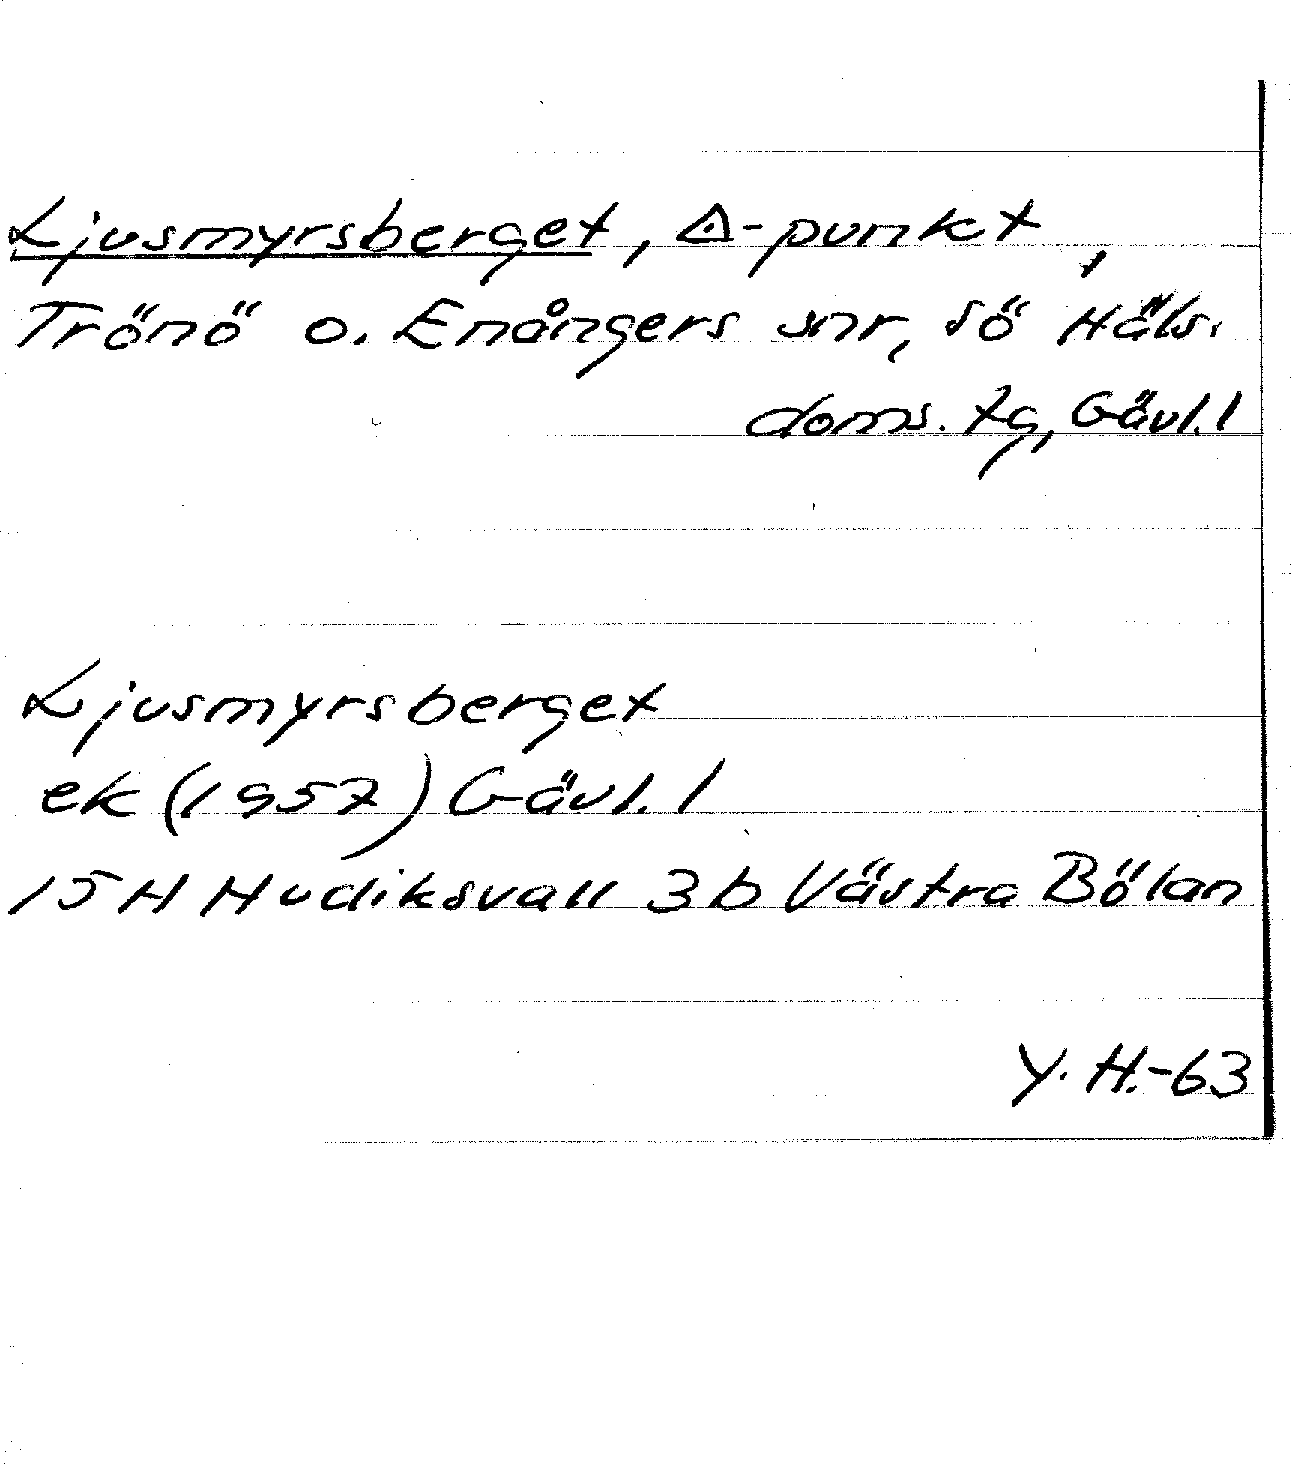 Ljusmyrsberget, △-punkt,
Trönö o. Enångers snr, sö Häls.
doms. tg, Gävl. l
Ljusmyrsberget
ek (1957) Gävl. l
15H Hudiksvall 3b Västra Bölan
Y. H.-63